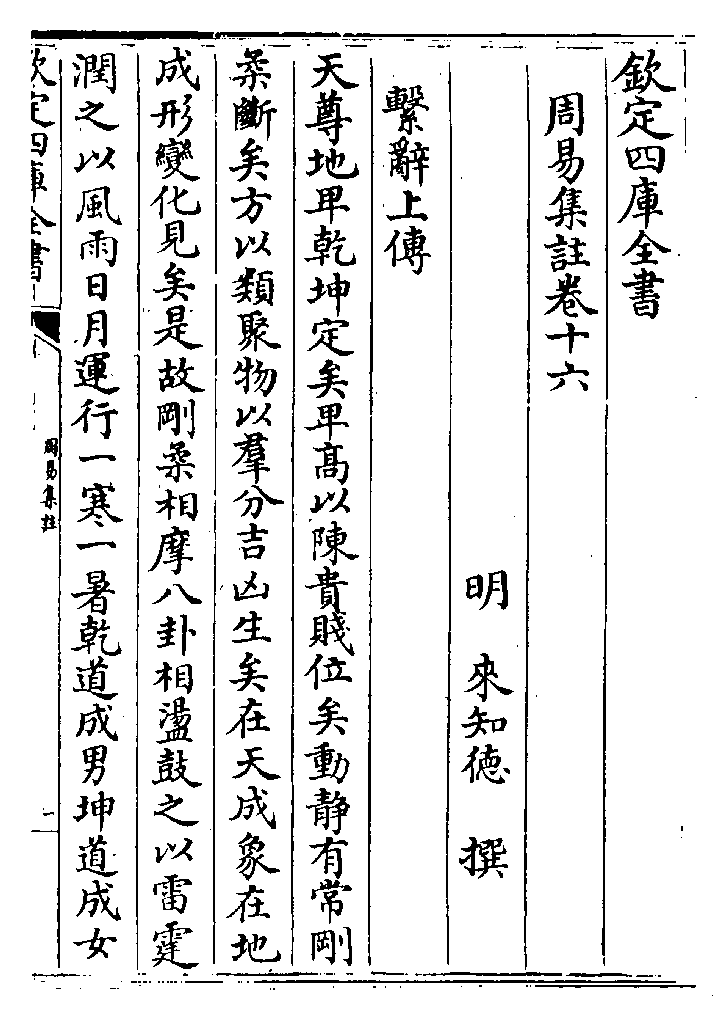 欽定四庫全書
周易集註卷十六
明 來知德 撰
繫辭上傳
天尊地卑乾坤定矣卑髙以陳貴賤位矣動靜有常剛
柔斷矣方以類聚物以羣分吉凶生矣在天成象在地
成形變化見矣是故剛柔相摩八卦相盪鼓之以雷霆
潤之以風雨日月運行一寒一暑乾道成男坤道成女
欽定四庫全書
周易集註
一